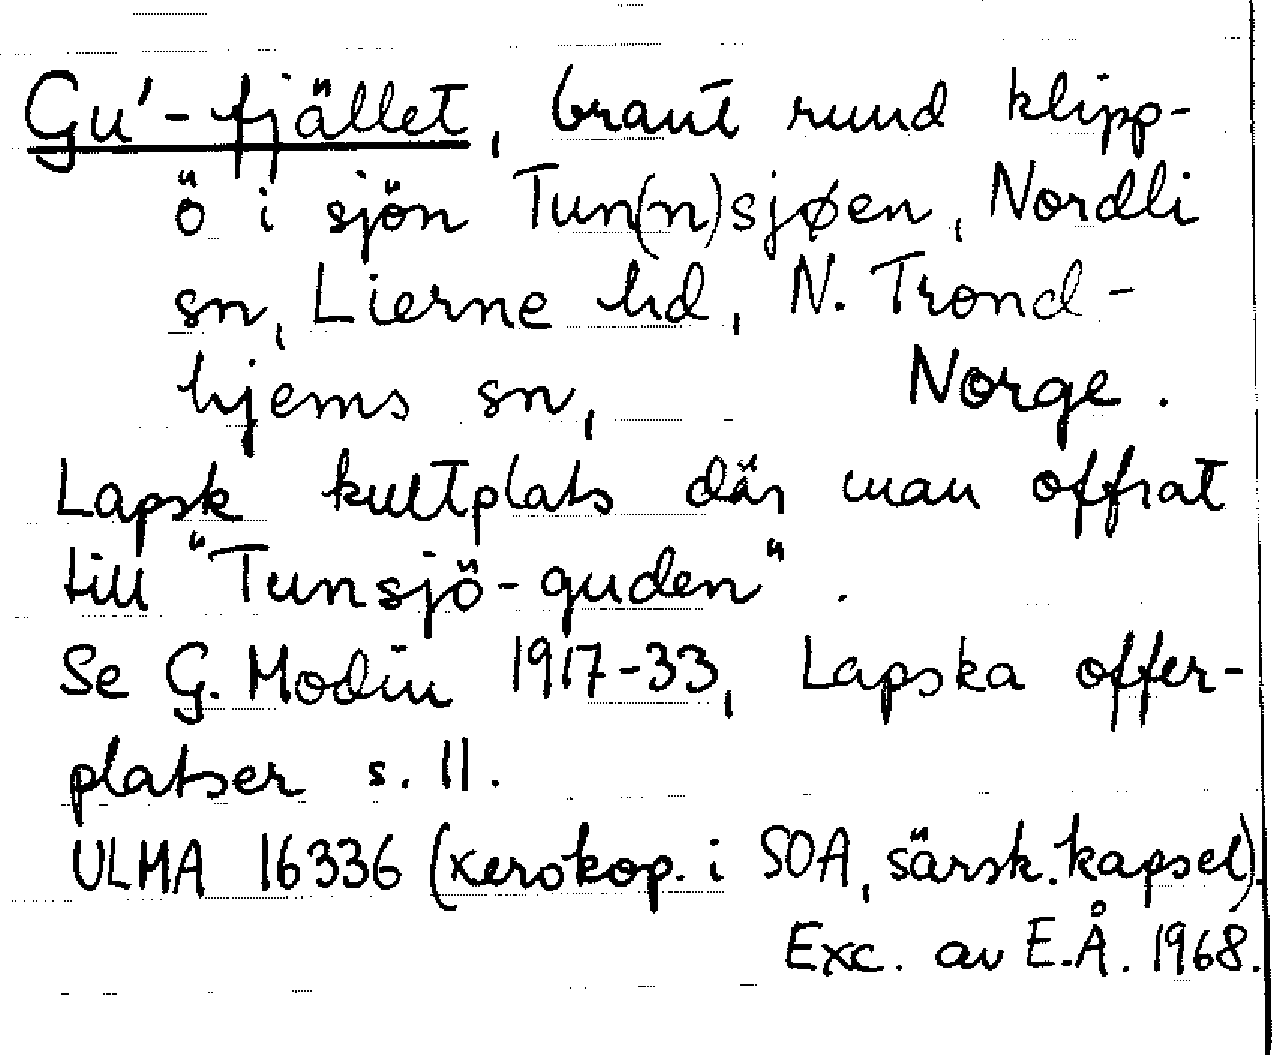 Gu'-fjället, brant rund klipp-
ö i sjön Tun(n)sjøen, Nordli
sn, Lierne hd, N. Trond-
hjems sn, Norge.
Lapsk kultplats där man offrat
till "Tunsjö-guden".
Se G. Modin 1917-33, Lapska offer-
platser s. 11.
ULMA 16336 (xerokop. i SOA, särsk. kapsel).
Exc. av E.Å. 1968.